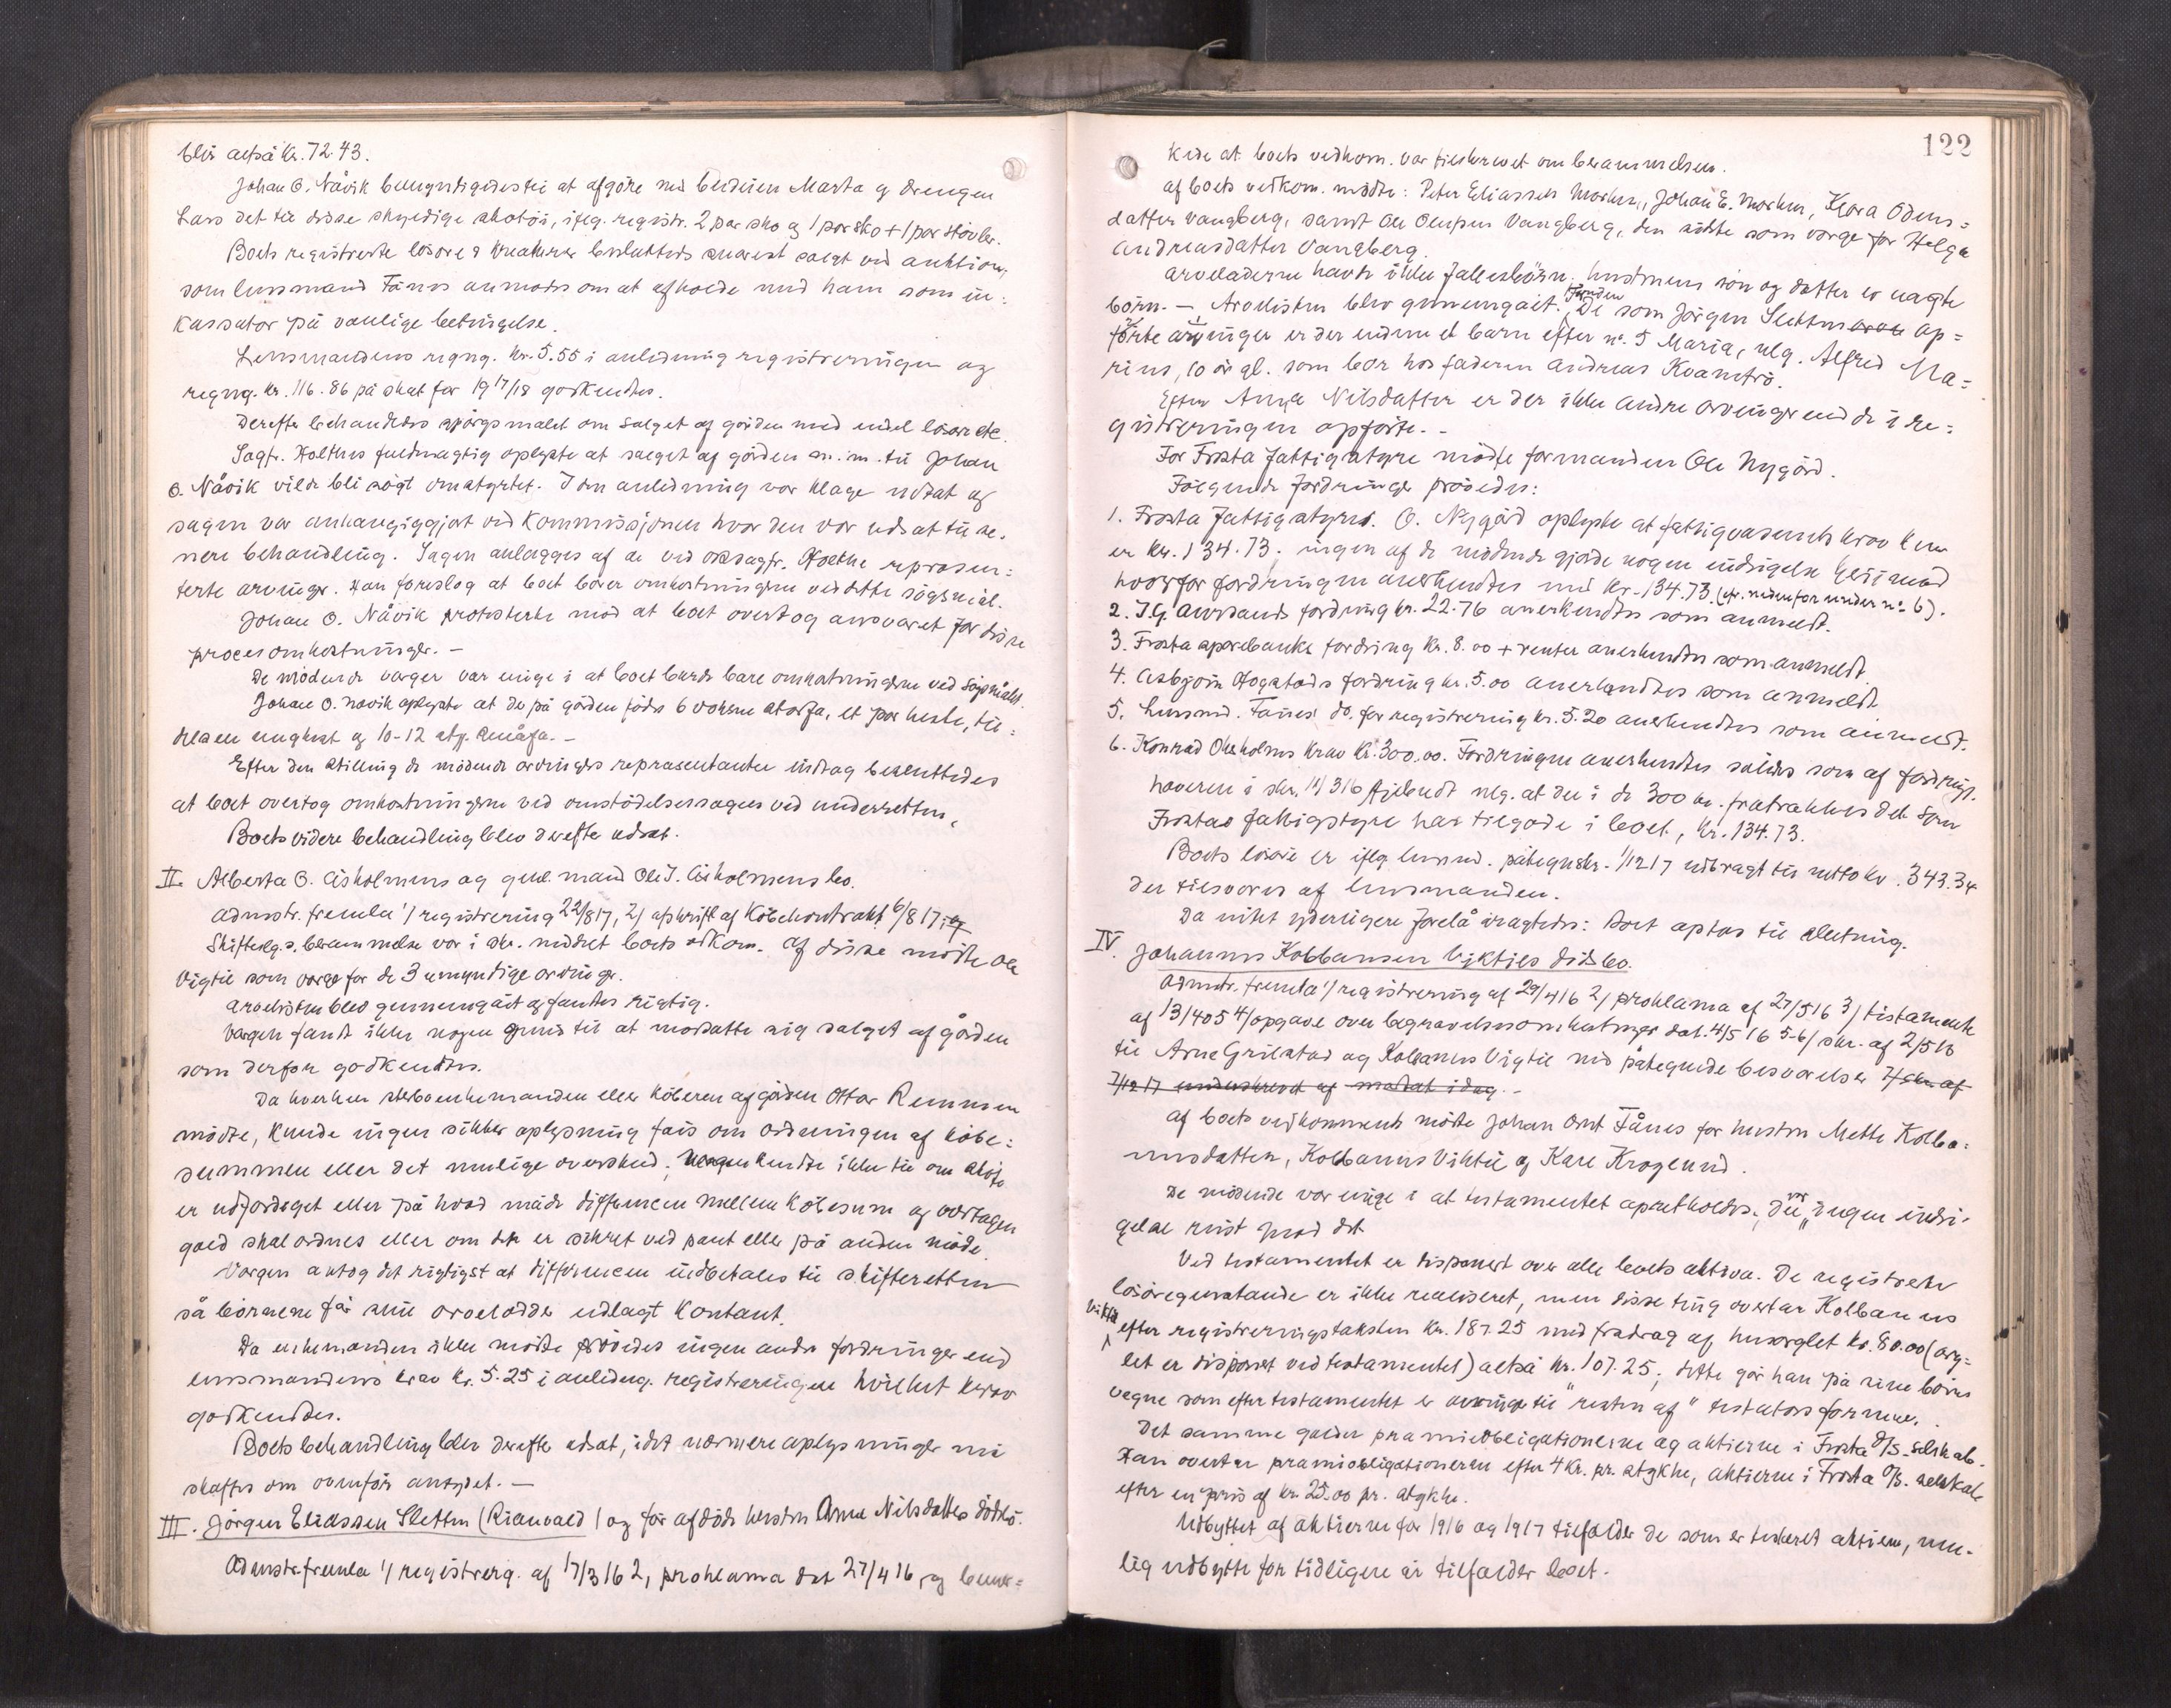 blir altså kr. 72.43.
Johan O. Nåvik bemyndigedes til at afgöre med berderen Marta og drengen
Lars det til disse skyldige skotöi, iflg. registr. 2 par sko og 1 par sko + 1 par stövler.
Boets registrerte lösöre & kreaturer besluttedes snarest solgt ved auktion,
som lensmand Fånes anmodes om at afholde med ham som in=
kassator på vanlige betingelse.
Lensmandens regng. kr. 5.55 i anledning registreringen og
regng. kr. 116.86 på skat for 1917/18 godkendtes.
Derefter behandledes spörgsmålet om salget af gården med endel lösöre etc.
Sagf. Holthes fuldmægtig oplyste at salget af gården m. m. til Johan
O. Nåvik vilde bli sögt omstyrtet. I den anledning var klage udtat og
sagen var anhængiggjort ved Kommissjonen hvor den var udsat til se-
nere behandling. Sagen anlægges af de ved o.r.sagfr. Holthe represen=
terte arvinger. Han foreslog at boet bærer omkostningerne ved dette sögsmål.
Johan O. Nåvik protesterte mod at boet overtog ansvaret for disse
procesomkostninger. —
De mödende værger var enige i at boet burde bære omkostningerne ved sögsmålet.
Johan O. Nåvik oplyste at der på gården födes 6 voksne storfæ, et par heste, til=
dels en unghest og 10-12 stk. småfæ. —
Efter den stilling de mödende arvingers repræsentanter indtog besluttedes
at boet overtog omkostningerne ved omstödelsessagen ved underretten.
Boets videre behandling blev derefter udsat.
II. Alberta O. Åsholmens og gjenl. mand Ole J. Åsholmens bo.
Admstr. fremla 1/ registrering 22/8 17, 2/ afskrift af Köbekontrakt 6/8 17, og
Skiftesg.s. berammelse var i skr. meddelt boets vedkom. Af disse mödte Ole
Vigtil som værge for de 3 umyndige arvinger.
Arvelisten blev gennemgået og fantes rigtig.
Værgen fandt ikke nogen grund til at modsætte sig salget af gården
som derfor godkendtes.
Da hverken sterboenkemanden eller köberen af gården Ottar Remmen
mödte, kunde ingen sikker oplysning fåes om ordningen af köbe=
summen eller det mulige overskud; Værgen kendte ikke til om skjöte
er udfærdiget eller på hvad måde differencen mellem köbesum og overtagen
gæld skal ordnes eller om den er sikret ved pant eller på anden måde.
Værgen antog det rigtigst at differencen indbetales til skifteretten
så börnene får sine arvelodder udlagt kontant.
Da enkemanden ikke mödte prövedes ingen andre fordringer end
lensmandens krav kr. 5.25 i anledng. registreringen hvilket krav
godkendtes.
Boets behandling blev derefter udsat, idet nærmere oplysninger må
skaffes om ovenför antydet. —
III. Jörgen Eliassen Sletten (Rianvald) og för afdöde hustru Anne Nilsdatters dödsbo.
Admstr. fremla 1/ registrerg. af 17/3 16 2, proklama dat 27/4 16, og bemær=
122
kede at boets vedkom. var tilskrevet om berammelsen.
Af boets vedkom. mödte: Peter Eliassen Morken, Johan E. Morken, Klara Odens=
datter Vangberg, samt Ole Olufsen Vangberg, den sidste som værge for Helga
Andreasdatter Vangberg.
Arveladerne havde ikke fællesbörn. Hustruens sön og datter er uægte
börn. — Arvelisten blev gennemgået. Foruden De som Jörgen Sletten arve op=
förte arvinger er der endnu et barn efter nr. 5 Maria, nlg. Alfred Ma=
rius, 10 år gl. som bor hos faderen Andreas Kvamtrö.
Efter Anne Nilsdatter er der ikke andre arvinger end de i re=
gistreringen opförte. -
For Frosta fattigstyre mödte formanden Ole Nygård.
Fölgende fordringer prövedes:
1. Frosta fattigstyres. O. Nygård oplyste at fattigvæsenets krav kun
er kr. 134.73. ingen af de mödende gjorde nogen indsigelse herimod
hvorfor fordringen anerkendtes med kr. 134.73. (cfr. nedenfor under nr. 6).
2. J. G. Aursands fordring kr. 22.76 anerkendtes som anmeldt.
3. Frosta sparebanks fordring kr. 8.00 + renter anerkendtes som anmeldt.
4. Asbjörn Hogstads fordring kr. 5.00 anerkendtes som anmeldt.
5. Lensmd. Fånes' do. for registrering kr. 5.20 anerkendtes som anmeldt.
6. Konrad Okkholms krav kr. 300.00. Fordringen anerkendtes således som af fordrings-
haveren i skr. 11/3 16 tilbudt nlg. at der i de 300 kr. fratrækkes det som
Frostas fattigstyre har tilgode i boet, kr. 134.73.
Boets lösöre er iflg lensmd. påtegnskr. 1/12 17 udbragt til netto kr. 343.34
der tilsvares af lensmanden.
Da intet yderligere forelå vragtedes: Boet optas til slutning.
IV. Johannes Kolbansen Viktils dödsbo.
Admstr. fremla 1/ registrering af 29/4 16 2/ proklama af 27/5 16 3/ testamente
af 13/4 05 4/ opgave over begravelsesomkostninger dat. 4/5 16 5-6/ skr. af 2/5 16
til Arne Grilstad og Kolbanus Vigtil med påtegnede besvarelser 7/ skr. af
7/12 17 underskrevet af modtat idag. -
Af boets vedkommende mödte Johan Ornt Fånes for hustru Mette Kolba=
nusdatter, Kolbanus Viktil og Kare Kroglund.
De mödende var enige i at testamentet opretholdes. Der var ingen indsi-
gelse reist mod det
Ved testamentet er disponert over alle boets aktiva. De registrerte
lösöregenstande er ikke realiseret, men disse ting overtar Kolbanus
Viktil efter registreringstaksten kr. 187.25 med fradrag af husorglet kr. 80.00 (org=
let er disponert ved testamentet) altså kr. 107.25; dette gör han på sine börns
vegne som efter testamentet er arvinger til "resten af" testators formue.
Det samme gælder præmieobligationerne og aktierne i Frosta D/S. selskab.
Han overtar præmieobligationerne efter 4 kr. pr. stykke, aktierne i Frosta D/S. selskab
efter en pris af kr. 25.00 pr. stykke.
Udbyttet af aktierne for 1916 og 1917 tilfalder de som er testeret aktiene, mu-
lig udbytte for tidligere år tilfalder boet.